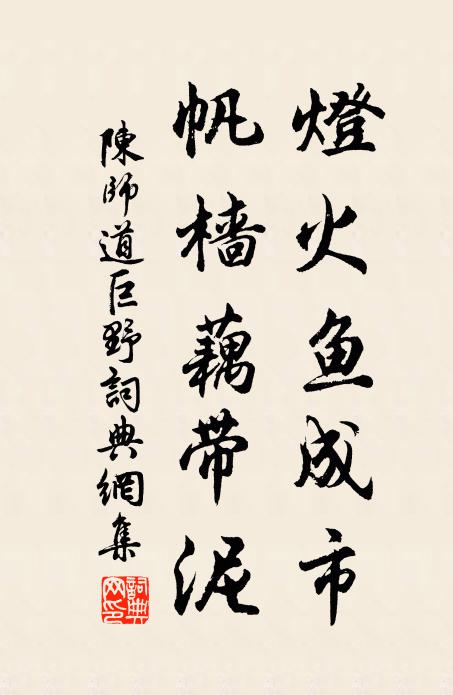 燈火魚成市
帆檣藕帶泥
陳師道巨野詞典網集
詞典網印